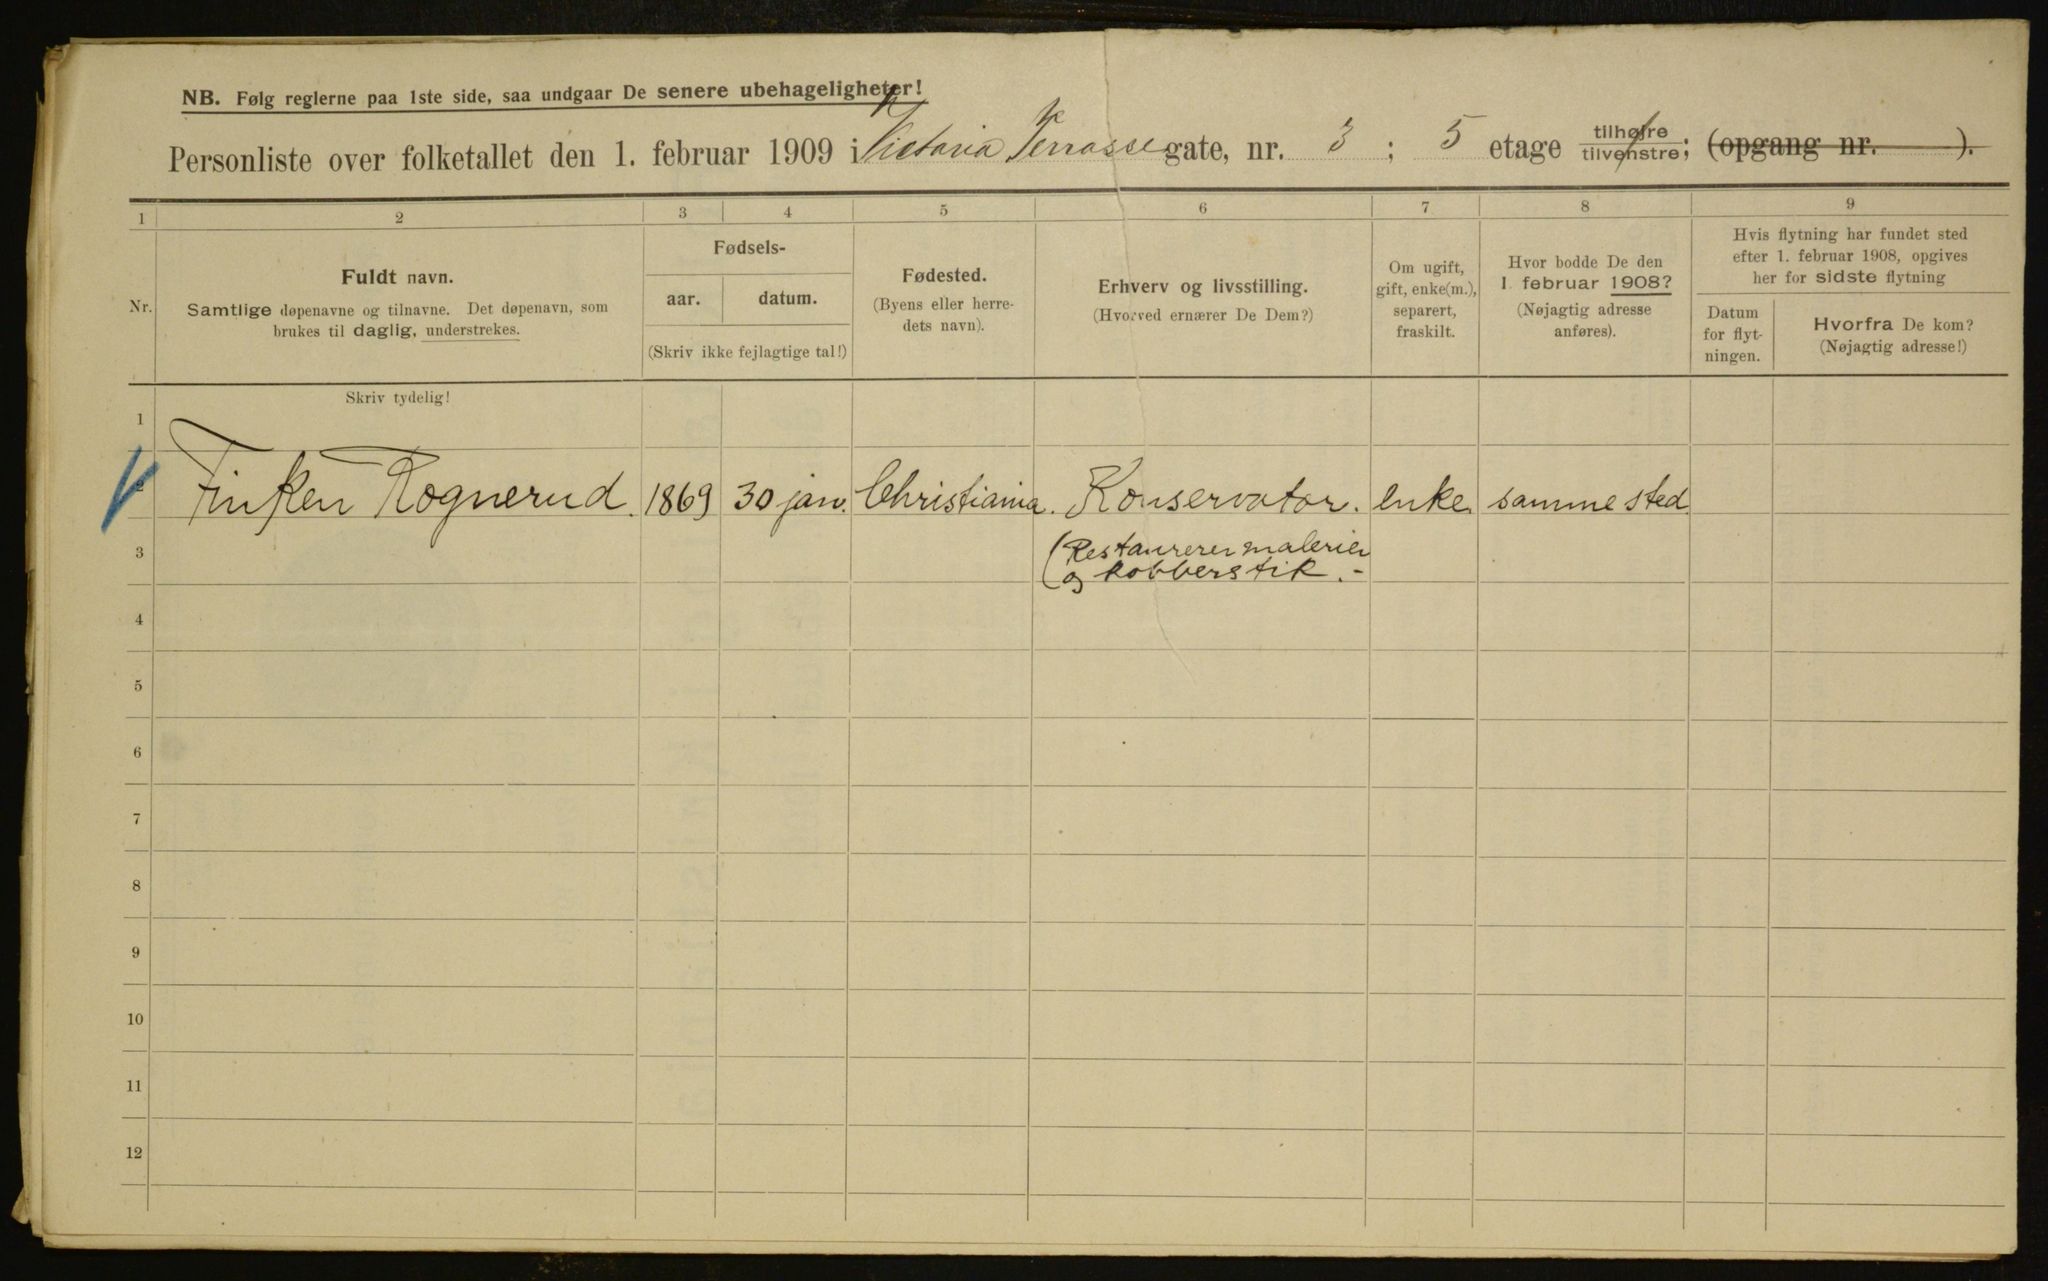 NB. Følg reglerne paa 1ste side, saa undgaar De senere ubehageligheter!
Personliste over folketallet den 1. februar 1909 i Victoria Terrasse gate, nr. 3 ; 5 etage tilhøire tilvenstre; (opgang nr. ).
1 2 3 4 5 6 7 8 9
Nr.
Fuldt navn.
Samtlige døpenavne og tilnavne. Det døpenavn, som
brukes til daglig, understrekes.
Fødsels-
aar. datum.
(Skriv ikke fejlagtige tal!)
Fødested.
(Byens eller herre-
dets navn).
Erhverv og livsstilling.
(Hvorved ernærer De Dem?)
Om ugift,
gift, enke(m.),
separert,
fraskilt.
Hvor bodde De den
1. februar 1908?
(Nøjagtig adresse
anføres).
Hvis flytning har fundet sted
efter 1. februar 1908, opgives
her for sidste flytning
Datum
for flyt-
ningen.
Hvorfra De kom?
(Nøjagtig adresse!)
Skriv tydelig!
1
2 Finken Rognerud. 1869 30 jan. Christiania. Konservator. enke. samme sted.
3 (Restaurerer malerier
og kobberstik. -
4
5
6
7
8
9
10
11
12